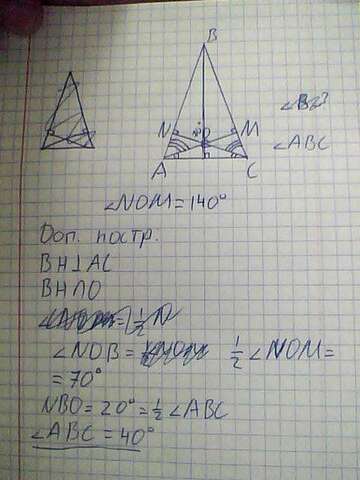 B
∠B
N
M
∠ABC
A
C
∠NOM = 140°
Доп. постр.
BH⊥AC
BH∩O
∠NOB = ½ ∠NOM =
= 70°
NBO = 20° = ½ ∠ABC
∠ABC = 40°